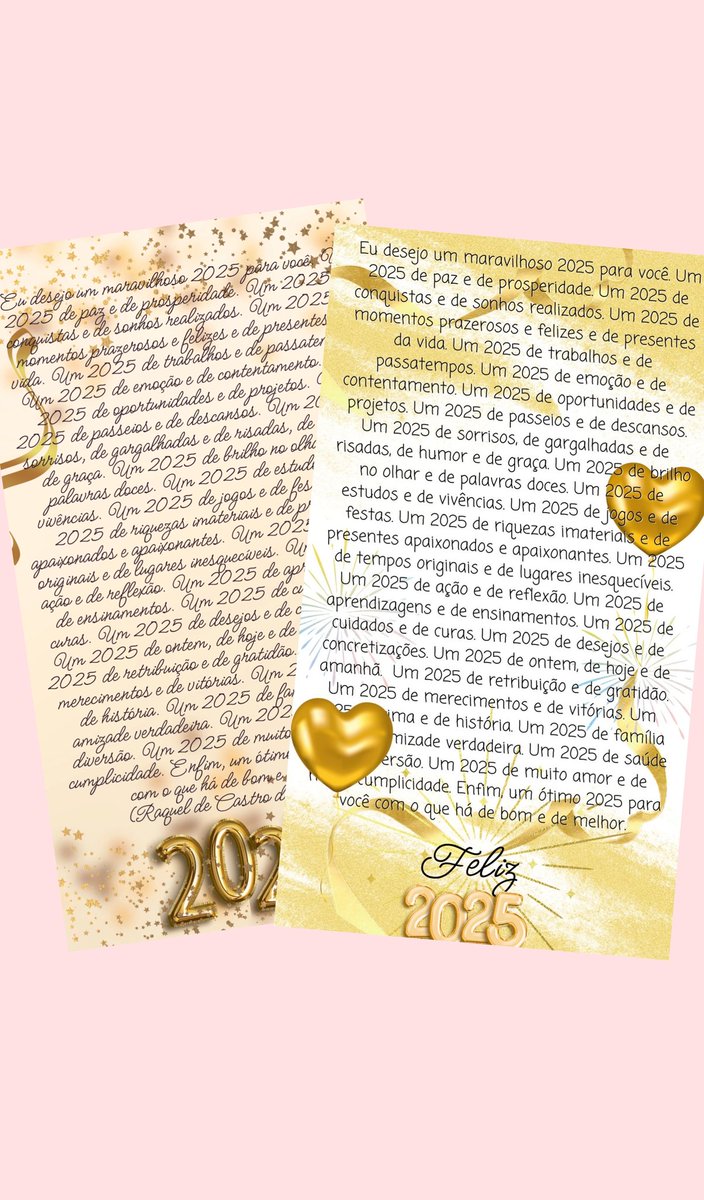 Eu desejo um maravilhoso 2025 para você.
2025 de paz e de prosperidade. Um 2025
conquistas e de sonhos realizados. Um 2025
momentos prazerosos e felizes e de presentes
vida. Um 2025 de trabalhos e de
Um 2025 de emoção e de contentamento.
2025 de oportunidades e de projetos.
2025 de passeios e de descansos. Um
sorrisos, de gargalhadas e de risadas, de
de graça. Um 2025 de brilho no
palavras doces. Um 2025 de
vivências. Um 2025 de jogos e de
2025 de riquezas imateriais e de
apaixonados e apaixonantes. Um
originais e de lugares inesquecíveis.
ação e de reflexão. Um 2025 de
de ensinamentos. Um 2025 de
curas. Um 2025 de desejos e de
Um 2025 de ontem, de hoje e de
2025 de retribuição e de gratidão.
merecimentos e de vitórias. Um
de história. Um 2025 de
amizade verdadeira. Um
diversão. Um 2025 de muito
cumplicidade. Enfim, um
com o que há de bom e
(Raquel de Castro
Eu desejo um maravilhoso 2025 para você. Um
2025 de paz e de prosperidade. Um 2025 de
conquistas e de sonhos realizados. Um 2025 de
momentos prazerosos e felizes e de presentes
da vida. Um 2025 de trabalhos e de
passatempos. Um 2025 de emoção e de
contentamento. Um 2025 de oportunidades e de
projetos. Um 2025 de passeios e de descansos.
Um 2025 de sorrisos, de gargalhadas e de
risadas, de humor e de graça. Um 2025 de brilho
no olhar e de palavras doces. Um 2025 de
estudos e de vivências. Um 2025 de jogos e de
festas. Um 2025 de riquezas imateriais e de
presentes apaixonados e apaixonantes. Um 2025
de tempos originais e de lugares inesquecíveis.
Um 2025 de ação e de reflexão. Um 2025 de
aprendizagens e de ensinamentos. Um 2025 de
cuidados e de curas. Um 2025 de desejos e de
concretizações. Um 2025 de ontem, de hoje e de
amanhã. Um 2025 de retribuição e de gratidão.
Um 2025 de merecimentos e de vitórias. Um
e de história. Um 2025 de família
verdadeira. Um 2025 de saúde
Um 2025 de muito amor e de
cumplicidade. Enfim, um ótimo 2025 para
você com o que há de bom e de melhor.
Feliz
2025